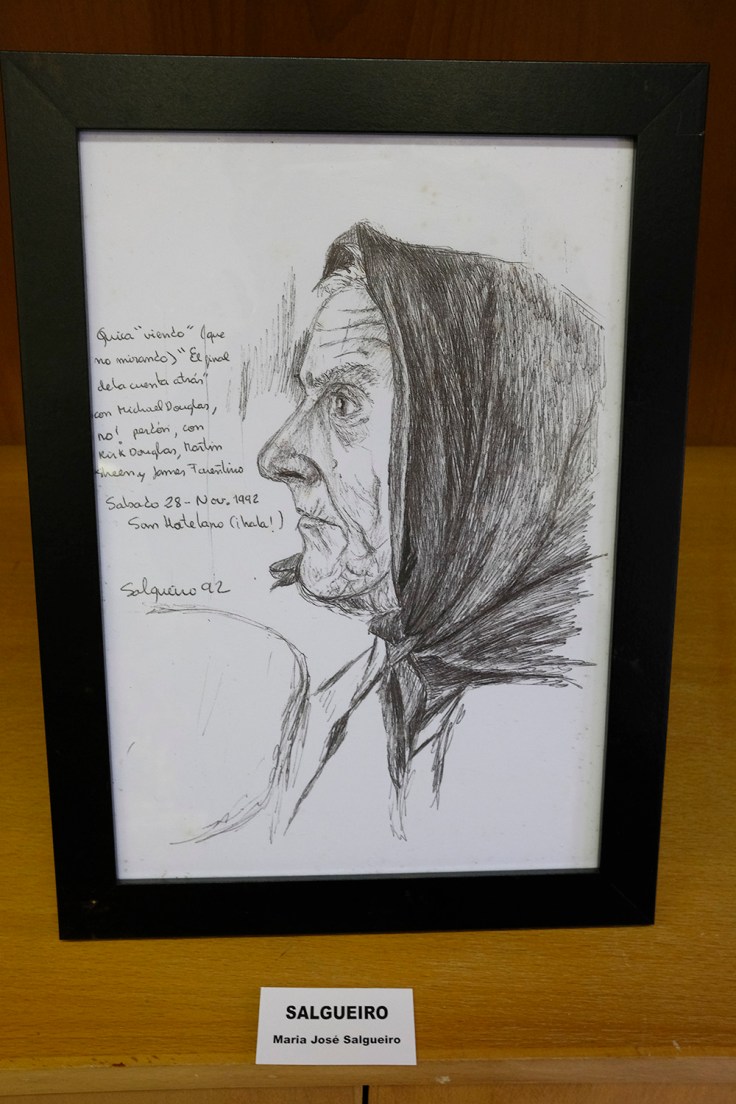 Quica "viendo" (que
no mirando) "El final
de la cuenta atrás"
con Michael Douglas,
no! perdón, con
Kirk Douglas, Martin
Sheen y James Farentino
Sabado 28-Nov. 1992
San (¡hala!)
Salgueiro 92
SALGUEIRO
Maria José Salgueiro